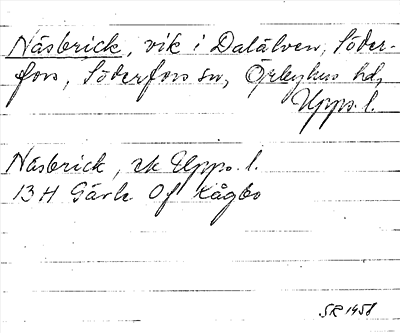 Näsbrick, vik i Dalälven, Söder-
fors, Söderfors sn, Örbyhus hd,
Upps. l.
Näsbrick, ek Upps. l.
13 H Gävle 0f Kågbo
SR 1458